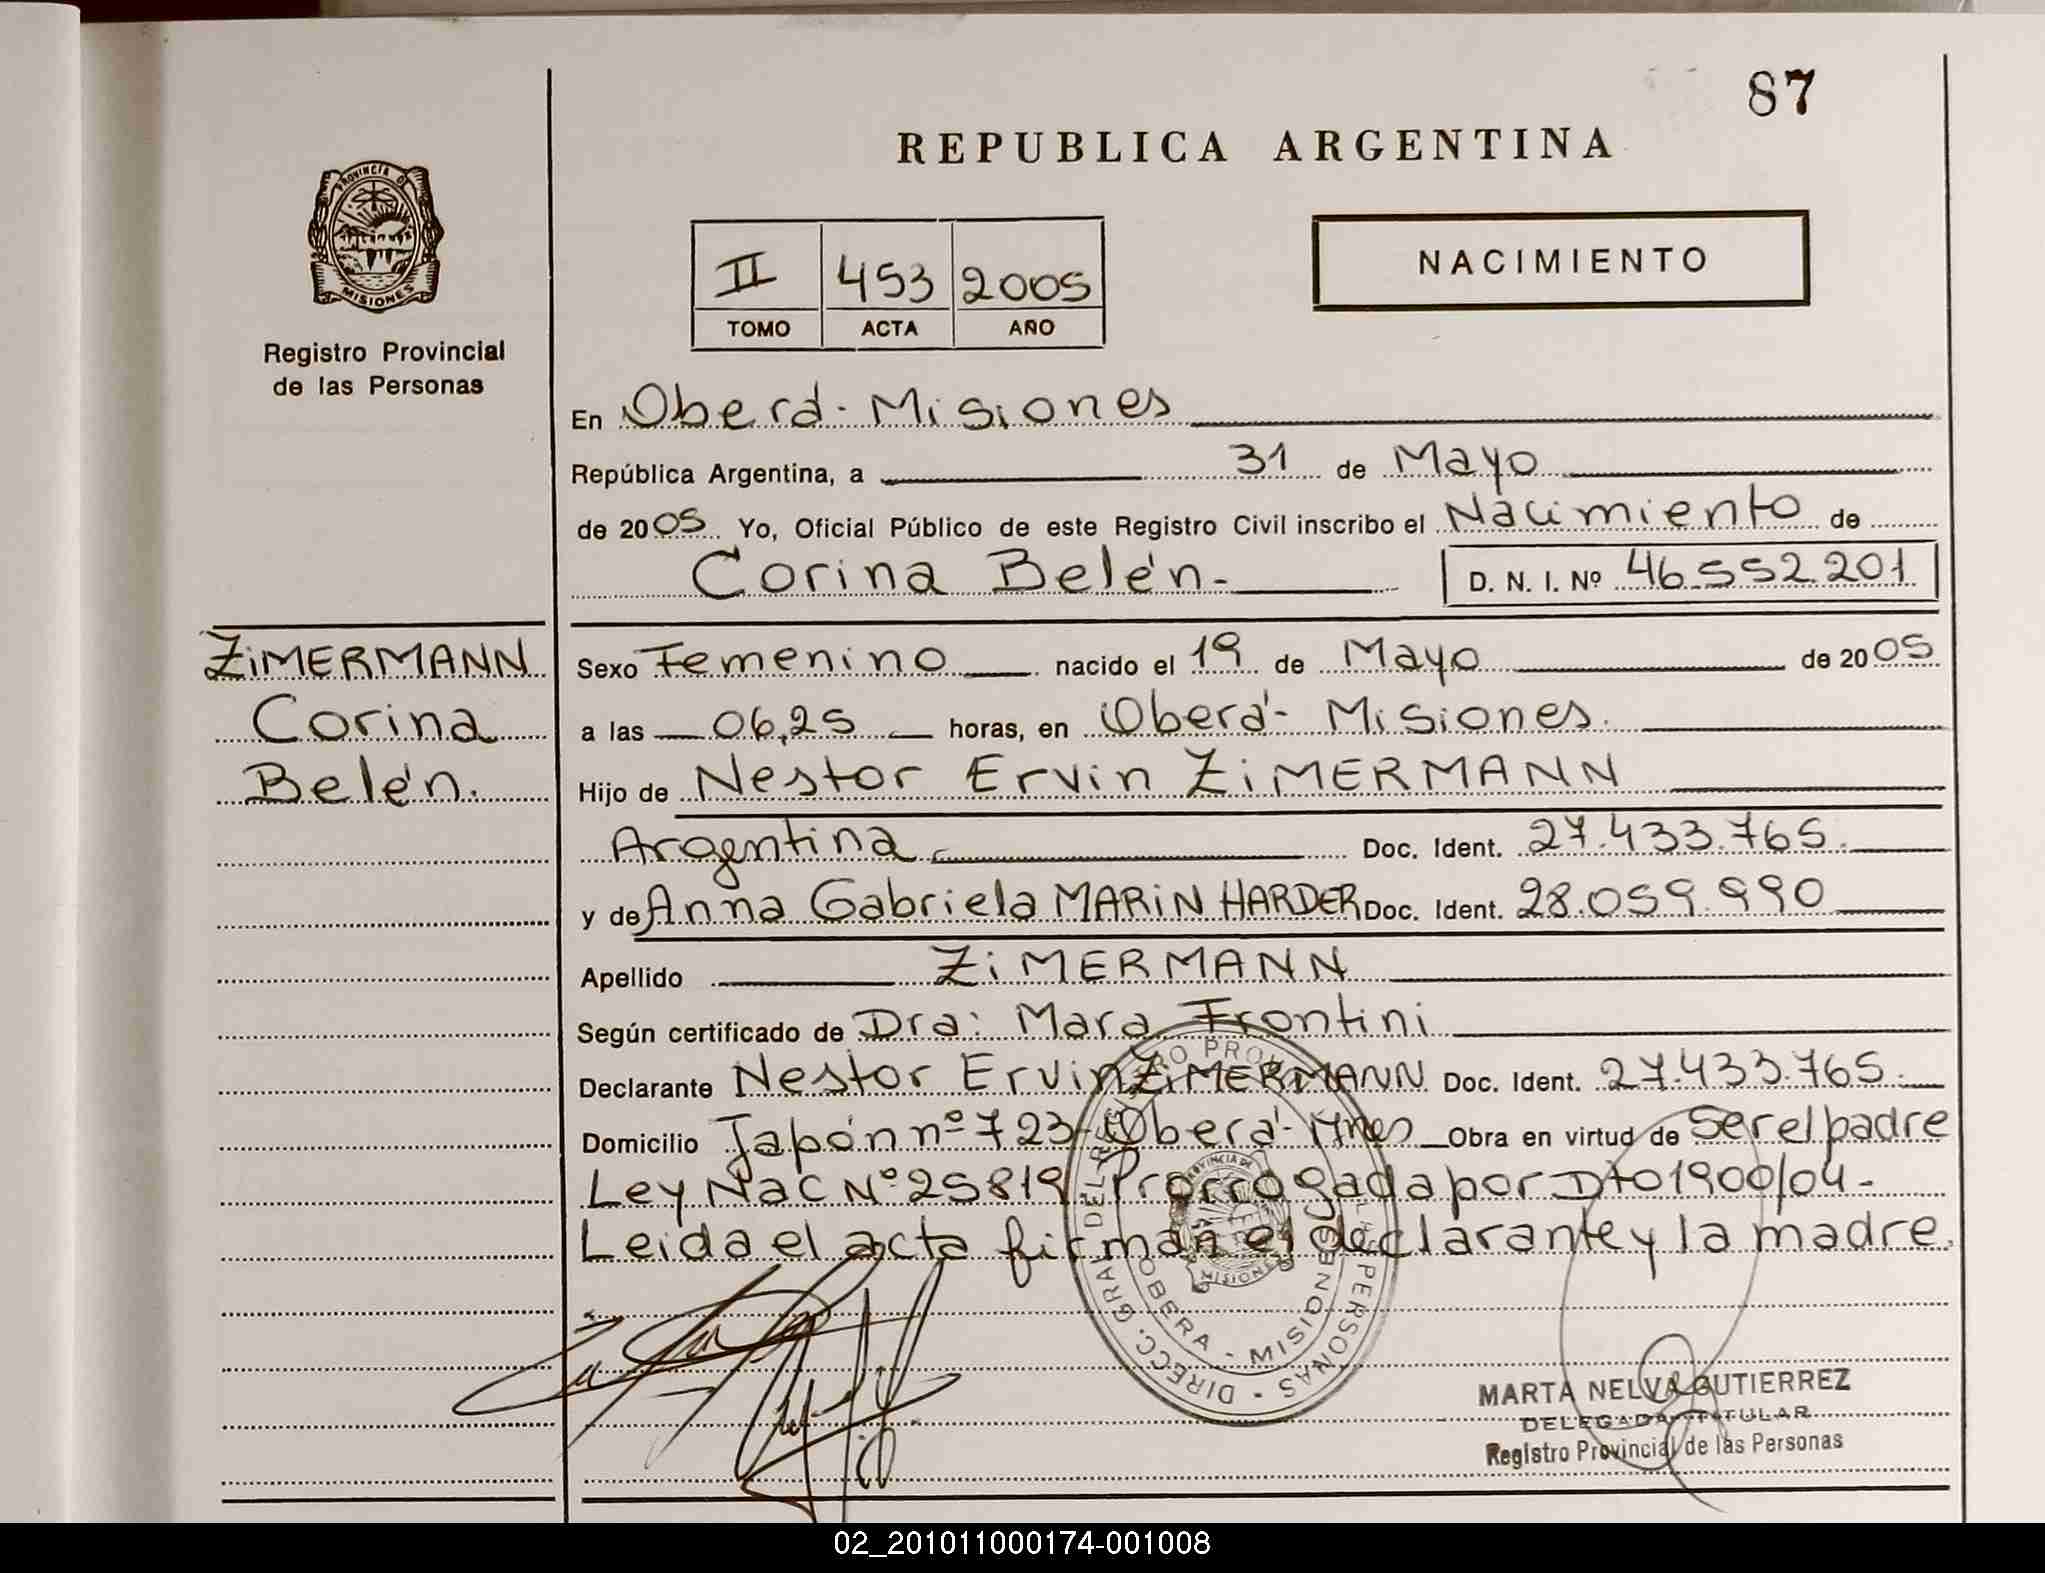 87
REPUBLICA ARGENTINA
PROVINCIA D
MISIONES
Registro Provincial
de las Personas
II 453 2005
TOMO ACTA AÑO
NACIMIENTO
En Oberá - Misiones
República Argentina, a 31 de Mayo
de 2005 Yo, Oficial Público de este Registro Civil inscribo el Nacimiento de
Corina Belén - D. N. I. Nº 46.552.201
ZiMERMANN
Corina
Belén.
Sexo Femenino nacido el 19 de Mayo de 2005
a las 06,25 horas, en Oberá - Misiones.
Hijo de Nestor Ervin ZiMERMANN
Argentina Doc. Ident. 27.433.765.
y de Anna Gabriela MARiN HARDER Doc. Ident. 28.059.990
Apellido ZiMERMANN
Según certificado de Dra: Mara Frontini
Declarante Nestor Ervin ZiMERMANN Doc. Ident. 27.433.765.
Domicilio Japón nº 723 - Oberá - Mnes Obra en virtud de Ser el padre
Ley Nac Nº 25819 Prorrogada por Dto 1900/04 -
Leida el acta firman el declarante y la madre.
DIRECC. GRAL DEL REGISTRO PROV. PERSONAS
OBERA - MISIONES
MISIONES
MARTA NELVA GUTIERREZ
DELEGADA TITULAR
Registro Provincial de las Personas
02_201011000174-001008